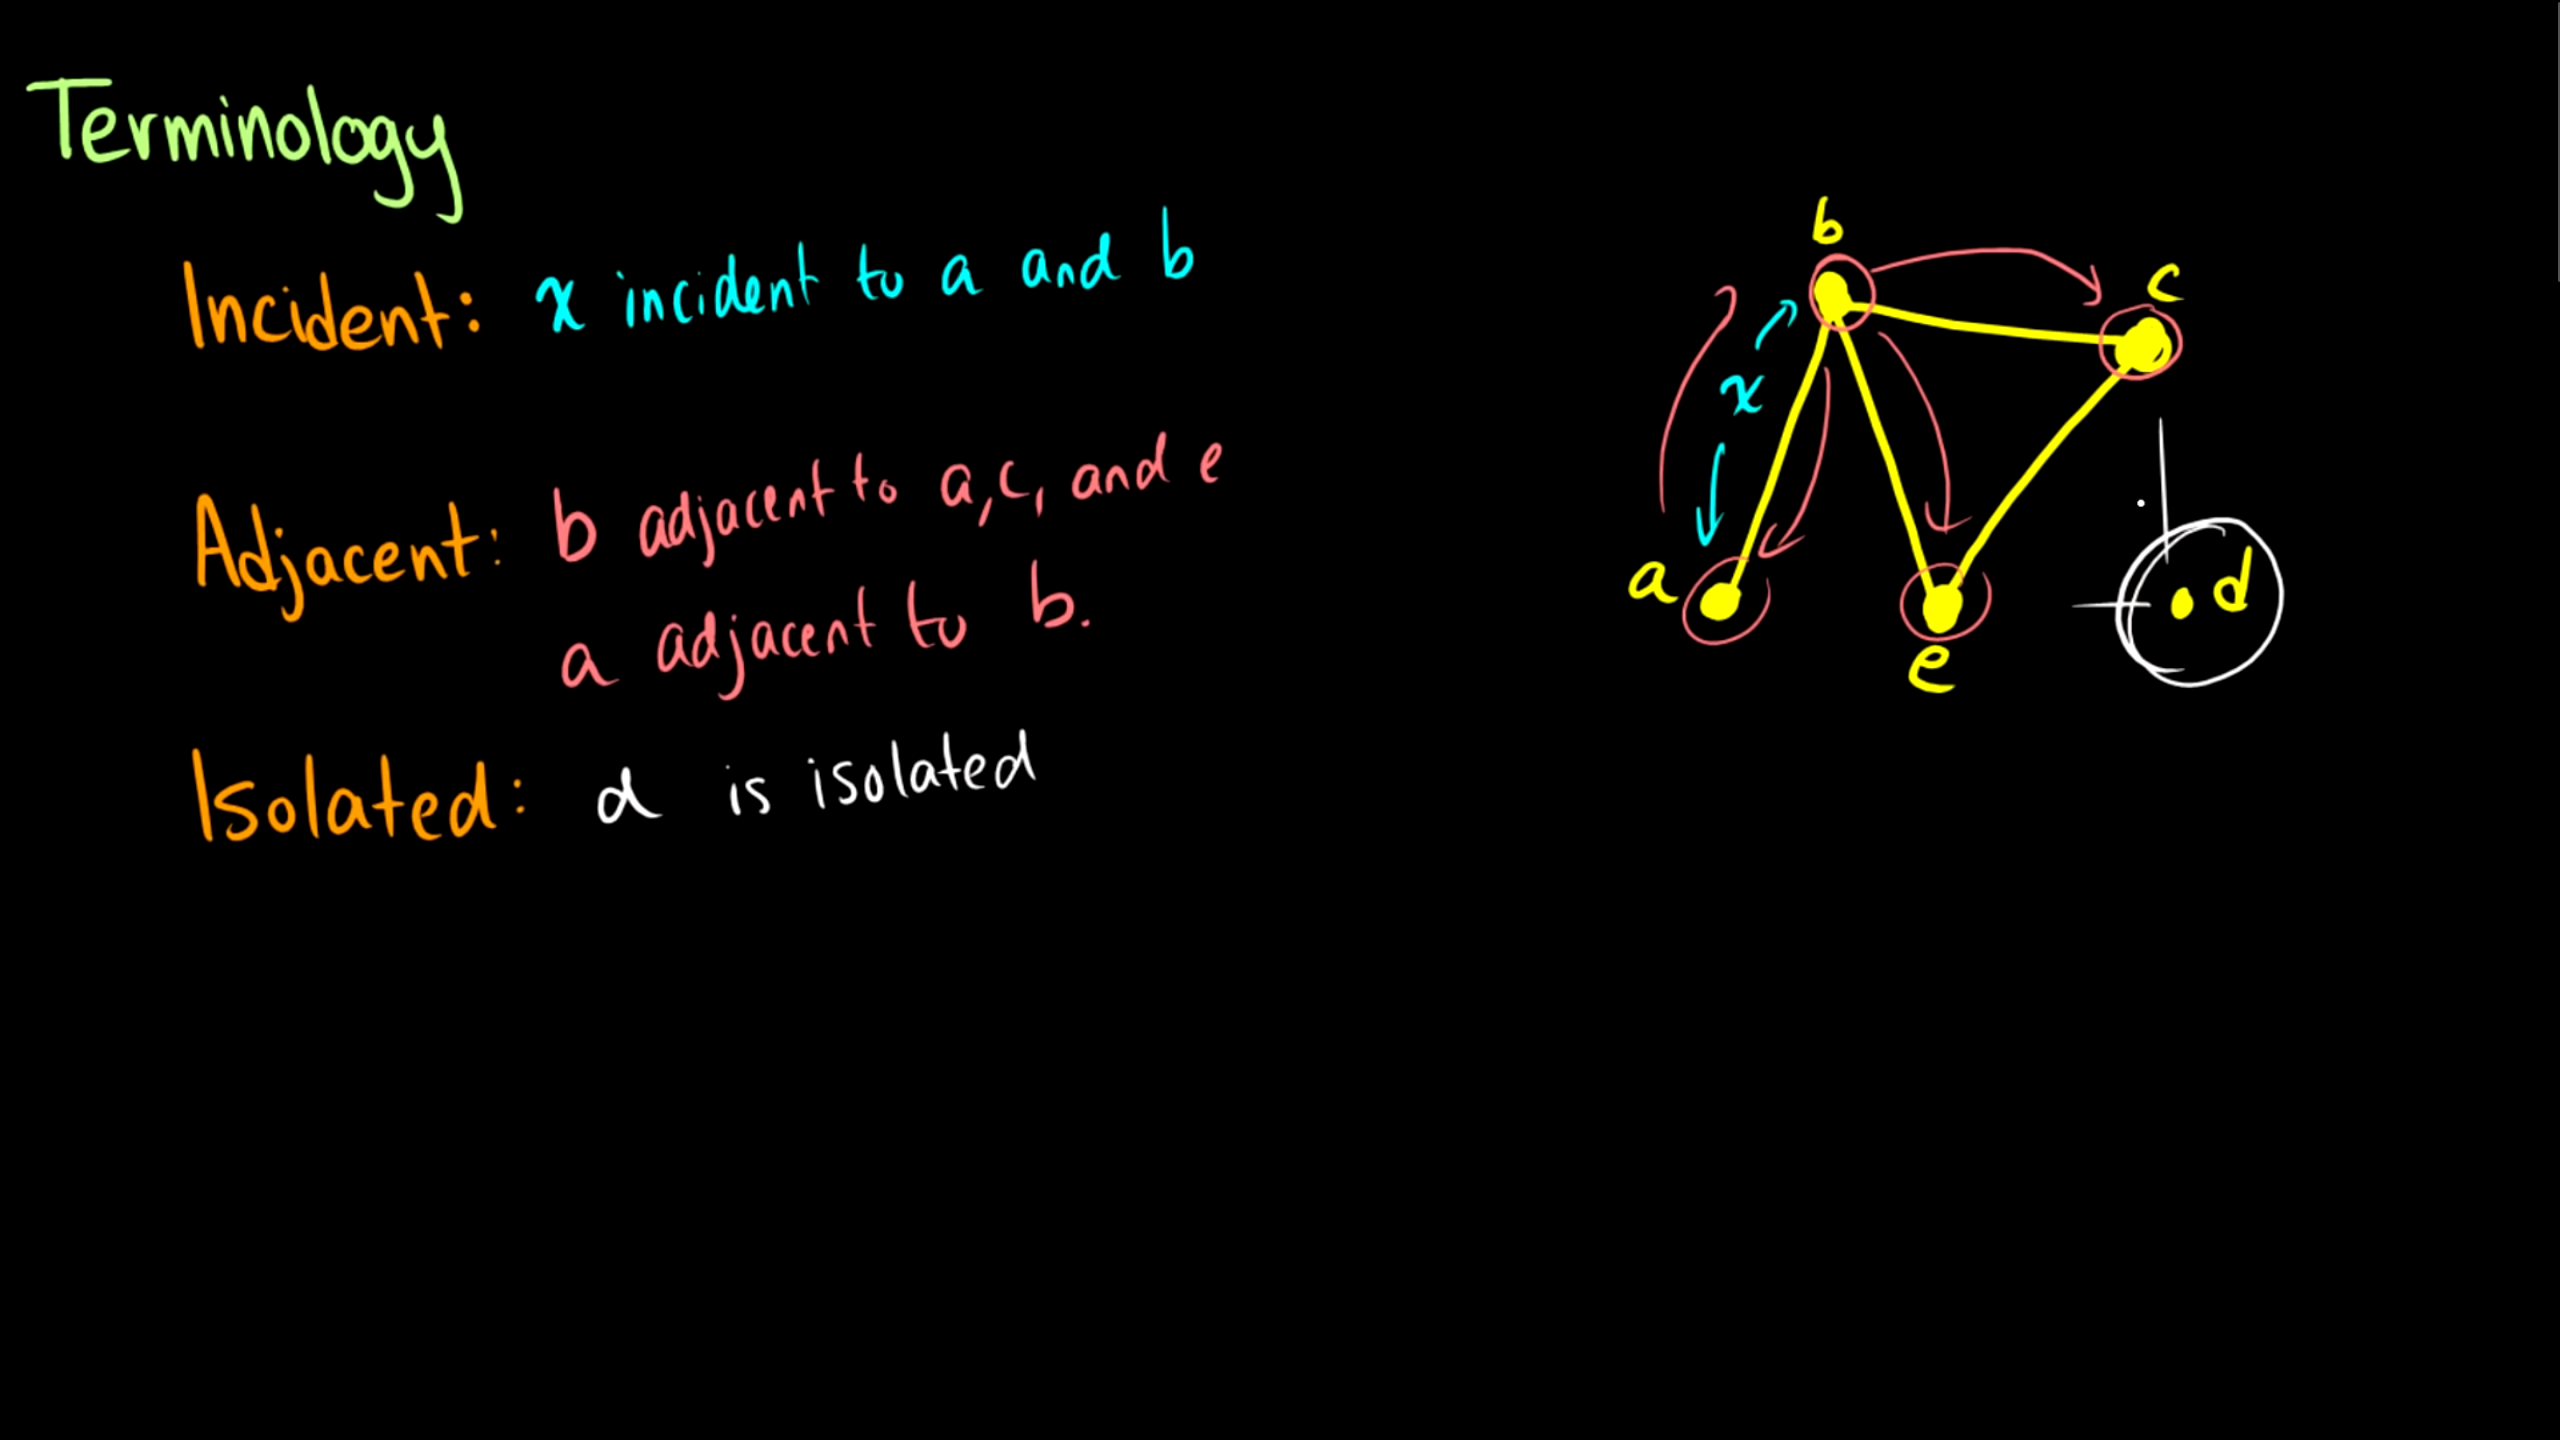 Terminology
Incident: x incident to a and b
Adjacent: b adjacent to a, c, and e
a adjacent to b.
Isolated: d is isolated
b
c
x
a
d
e